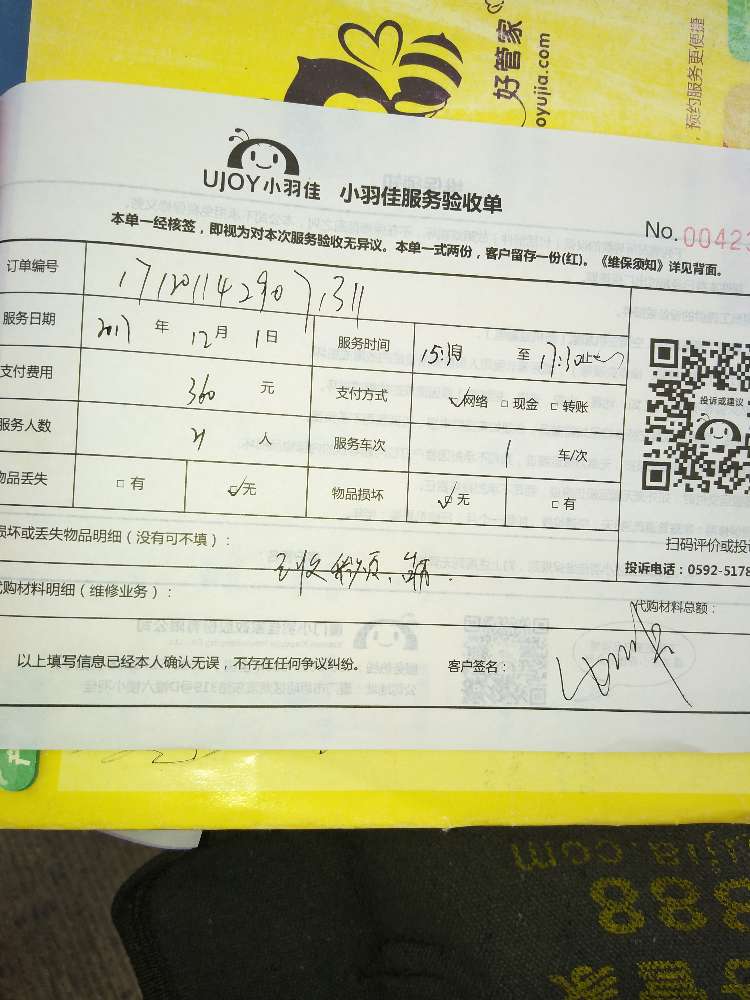 好管家
oyujia.com
预约服务更便捷
UJOY小羽佳 小羽佳服务验收单
No. 00423
本单一经核签，即视为对本次服务验收无异议。本单一式两份，客户留存一份(红)。《维保须知》详见背面。
订单编号 1712011429071311
服务日期 2017 年 12 月 1 日 服务时间 15:30 至 17:30止
支付费用 360 元 支付方式 ✓网络 □ 现金 □ 转账
服务人数 人 服务车次 1 车/次
物品丢失 □ 有 ✓无 物品损坏 ✓无 □ 有
投诉或建议
损坏或丢失物品明细（没有可不填）：
扫码评价或投诉
投诉电话：0592-5178
代购材料明细（维修业务）：
代购材料总额：
以上填写信息已经本人确认无误，不存在任何争议纠纷。 客户签名：
888